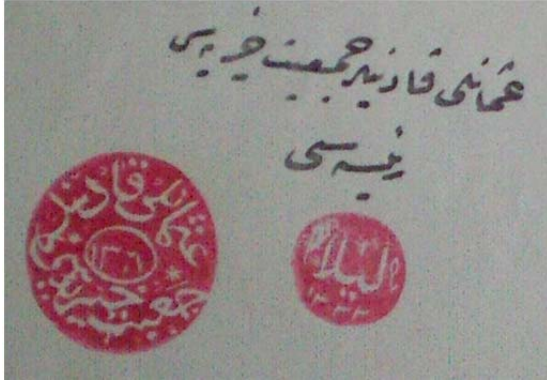 عثمانلی قادینلر جمعیت خیریه سی
رئیسه سی
عثمانلی قادینلر
جمعیت خیریه سی
لیلا